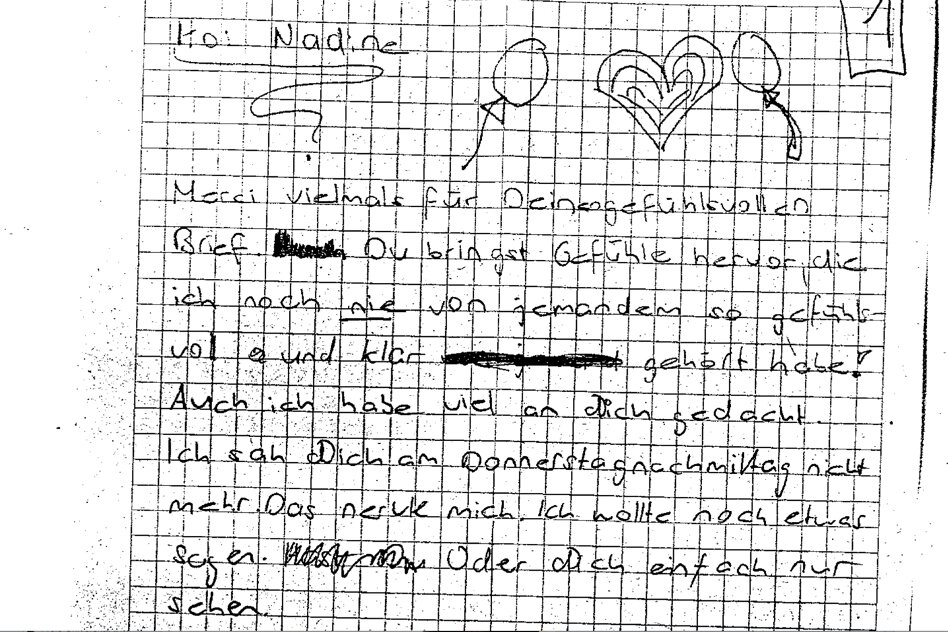 to: Nadine
Merci vielmals für Deinen gefühlsvollen
Brief. Du bringst Gefühle hervor, die
ich noch nie von jemandem so gefühls-
voll und klar gehört habe!
Auch ich habe viel an dich gedacht.
Ich sah Dich am Donnerstagnachmittag nicht
mehr. Das nervte mich. Ich wollte noch etwas
sagen. Oder dich einfach nur
sehen.